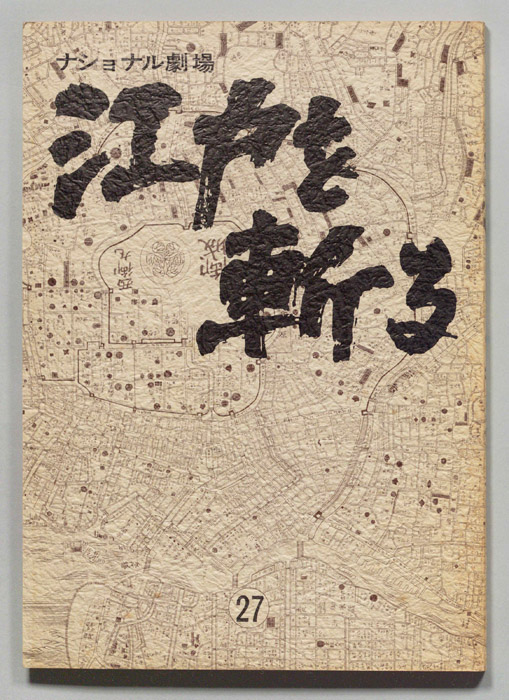 ナショナル劇場
江戸を
斬る
西御丸
27